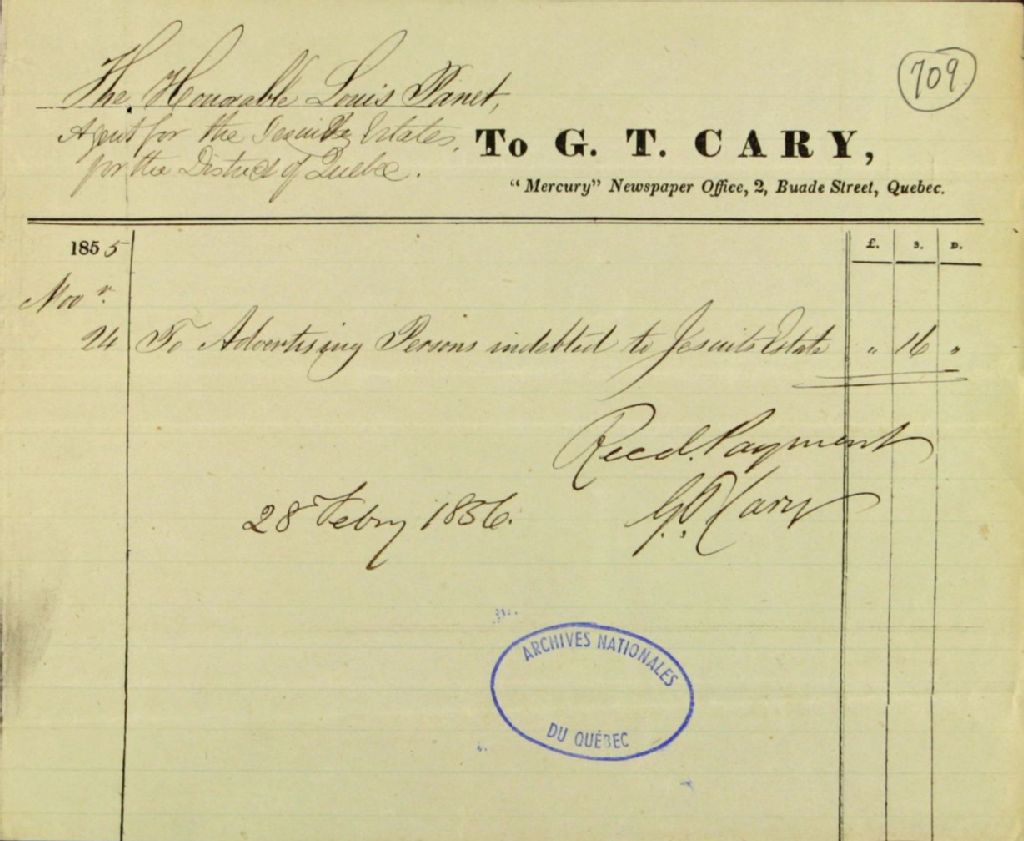 709
The Honorable Louis Panet,
Agent for the Jesuits Estates,
for the District of Quebec.
To G. T. CARY,
"Mercury" Newspaper Office, 2, Buade Street, Quebec.
1855 £. S. D.
Novr.
24 To Advertising Persons indebted to Jesuits Estate " 16 "
Recd. Payment
28 Febry 1856. G.T. Cary
ARCHIVES NATIONALES
DU QUÉBEC